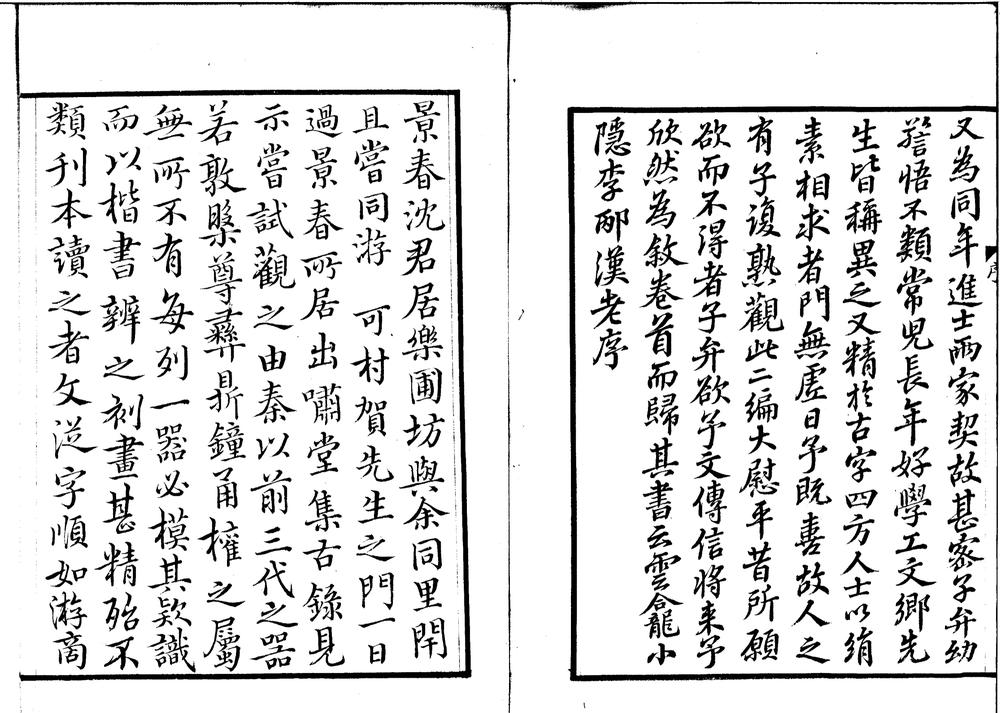 又為同年進士兩家契故甚密子弁幼
警悟不類常児長年好學工文鄉先
生皆稱異之又精於古字四方人士以絹
素相求者門無虚日予既善故人之
有子復熟觀此二編大慰平昔所願
欲而不得者子弁欲予文傳信將来予
欣然為敘卷首而歸其書云雲龕小
隱李邴漢老序
序
景春沈君居樂圃坊與余同里閈
且嘗同游 可村賀先生之門一日
過景春所居出嘯堂集古錄見
示嘗試觀之由秦以前三代之器
若敦槃尊彛鼎鐘甬權之屬
無所不有每列一器必模其欵識
而以楷書辨之刻畫甚精殆不
類刊本讀之者文從字順如游商